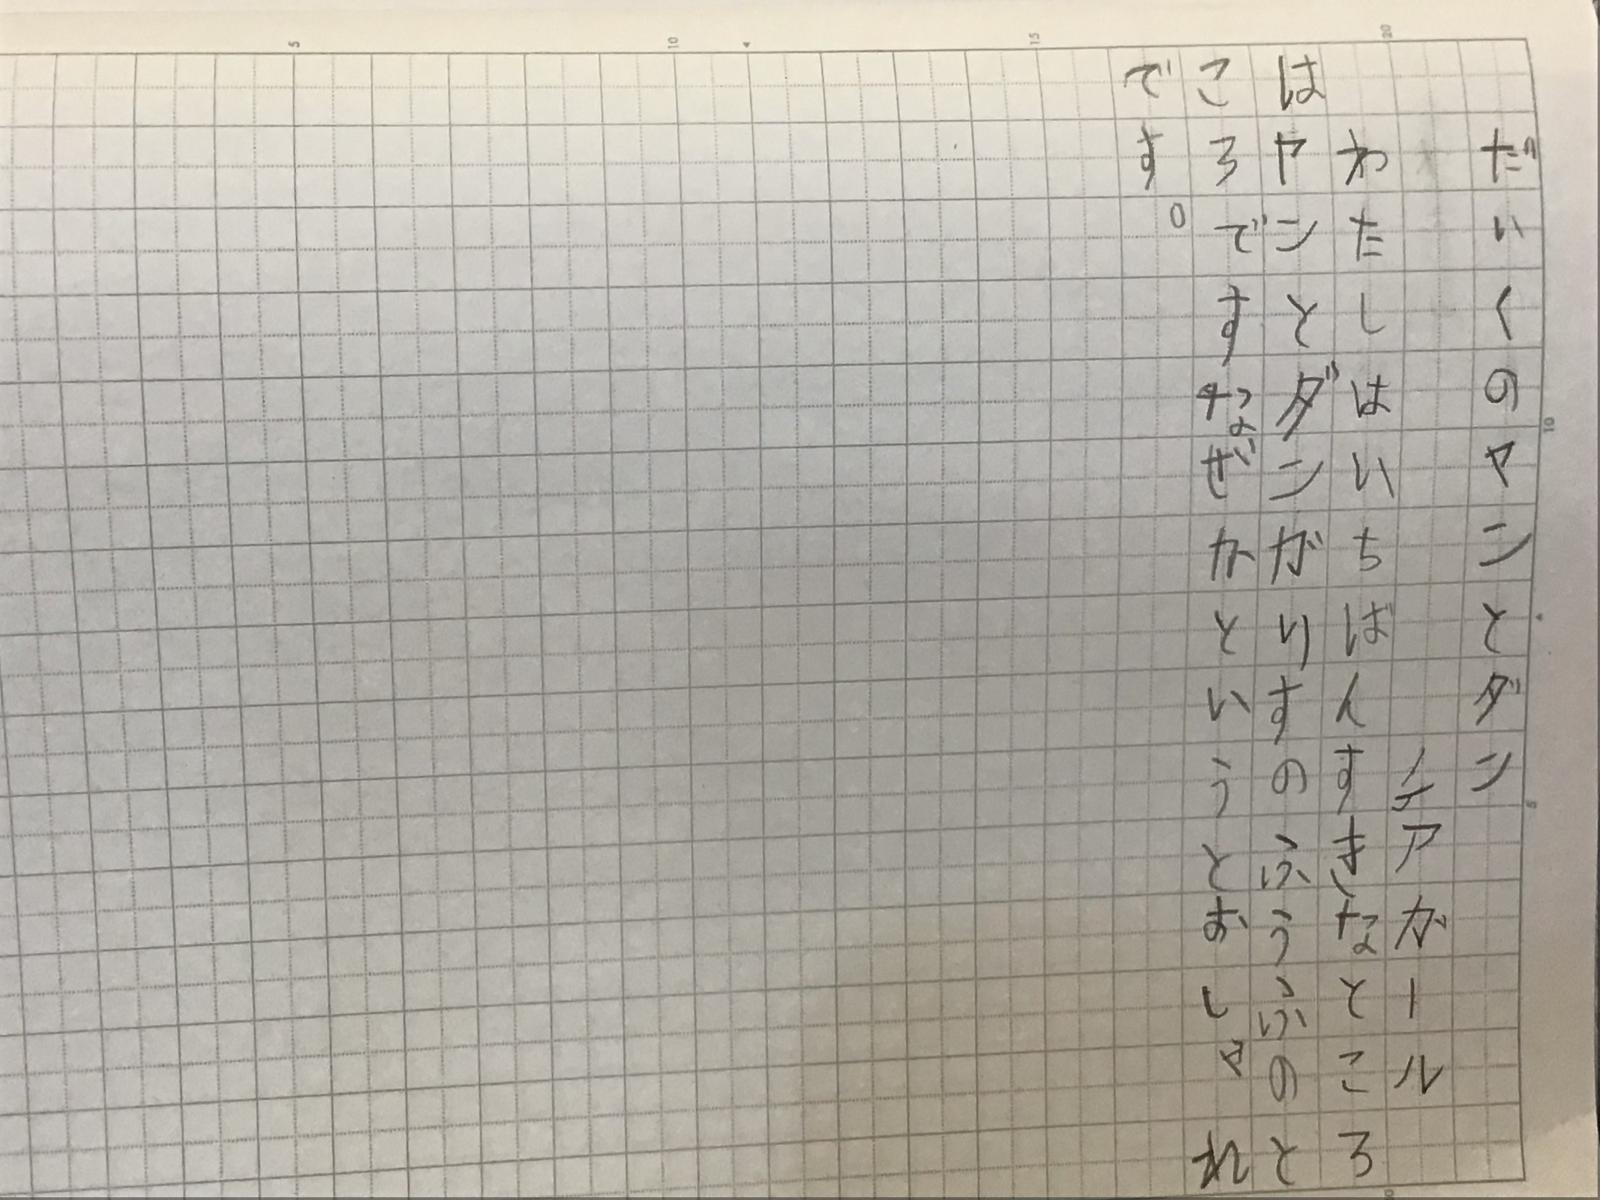 だいくのヤンとダン
チアガール
わたしはいちばんすきなところ
はヤンとダンがりすのふうふのと
ころですなぜかというとおしゃれ
です。